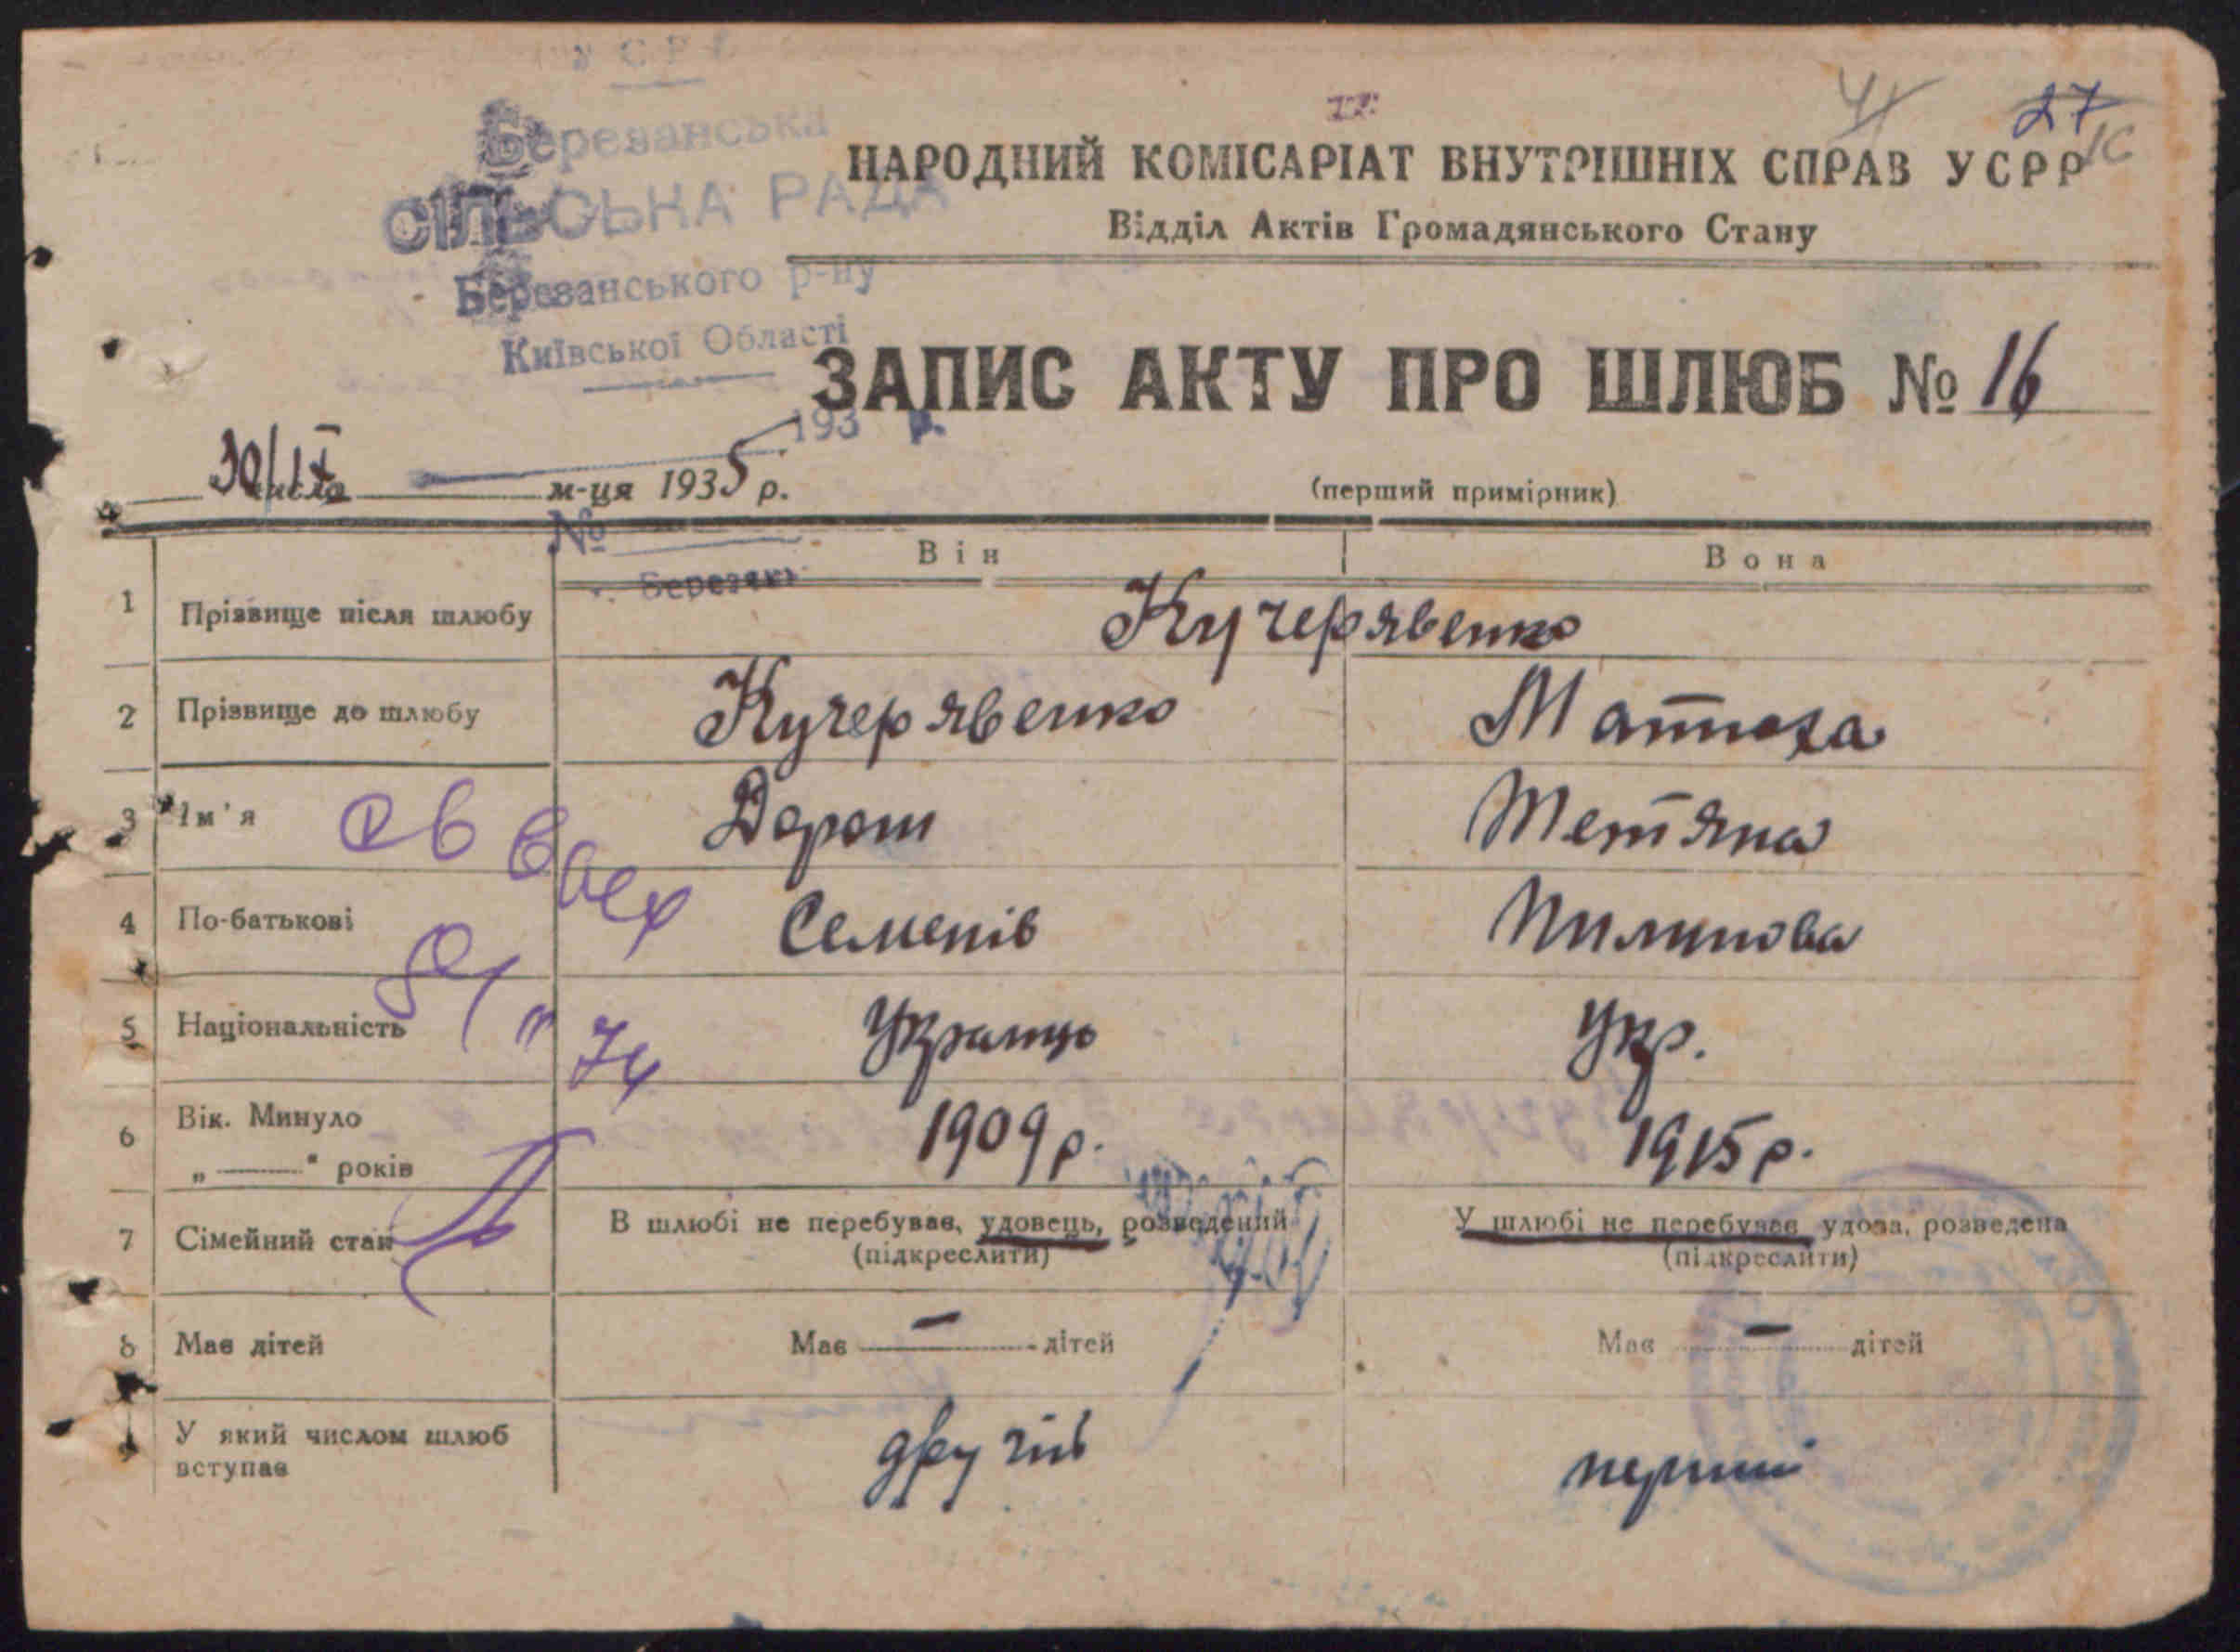 Березанська
СІЛЬСЬКА РАДА
Березанського р-ну
Київської Області
193 р.
№
Березань
27
НАРОДНИЙ КОМІСАРІАТ ВНУТРІШНІХ СПРАВ УСРР
Відділ Актів Громадянського Стану
ЗАПИС АКТУ ПРО ШЛЮБ № 16
30/IX числа м-ця 1935 р.
(перший примірник)
Він Вона
1 Прізвище після шлюбу Кучерявенко
2 Прізвище до шлюбу Кучерявенко Матюха
3 Ім'я Дорош Тетяна
4 По-батькові Семенів Пилипова
5 Національність Українць Укр.
6 Вік. Минуло 1909 р. 1915 р.
„ " років
7 Сімейний стан В шлюбі не перебував, удовець, розведений У шлюбі не перебувае удова, розведена
(підкреслити) (підкреслити)
8 Має дітей Має — дітей Має — дітей
9 У який числом шлюб другий перший
вступає
74